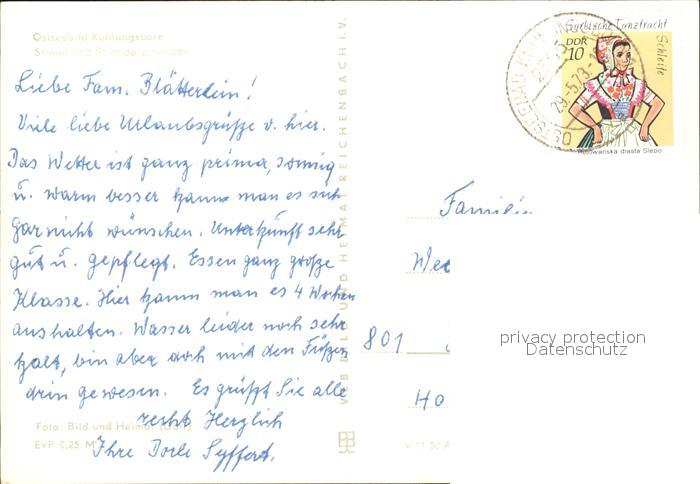 Ostseebad Kühlungsborn
Strand und Strandpromenade
Liebe Fam. Blätterlein!
Viele liebe Urlaubsgrüße v. hier.
Das Wetter ist ganz prima, sonnig
u. warm besser kann man es sich
gar nicht wünschen. Unterkunft sehr
gut u. gepflegt. Essen ganz große
Klasse. Hier kann man es 4 Wochen
aushalten. Wasser leider noch sehr
kalt, bin aber doch mit den Füßen
drin gewesen. Es grüßt Sie alle
recht Herzlich
Ihre Dorle Syffert.
Foto: Bild und Heimat
EVP 0,25 M
VEB BILD UND HEIMAT REICHENBACH i. V.
V 11 50 A
Sorbische Tanztracht
Schleife
DDR
10
Rejowanska drasta Slepo
OSTSEEBAD KÜHLUNGSBORN
29.-5.73-
Familie
801
privacy protection
Datenschutz